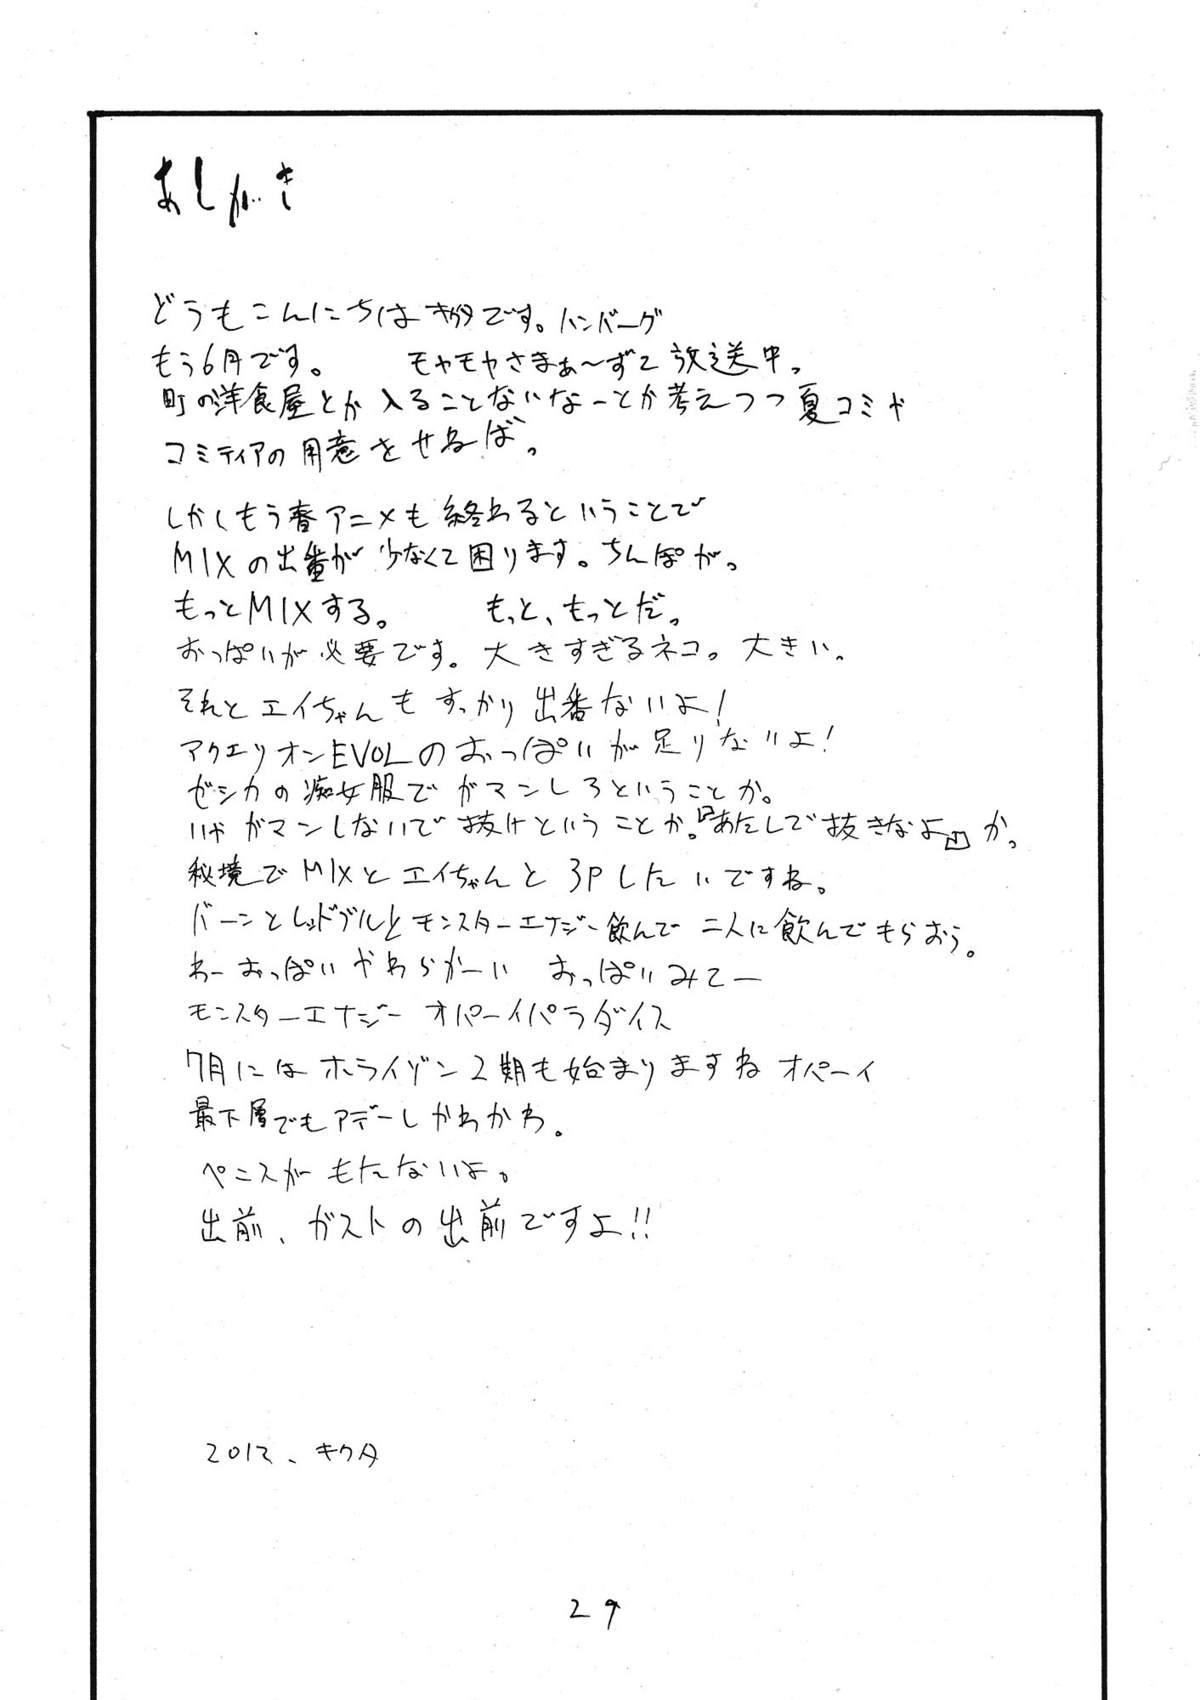 あしがき
どうもこんにちはキクタです。ハンバーグ
もう6月です。 モヤモヤさまぁ〜ず2放送中。
町の洋食屋とか入ることないなーとか考えつつ夏コミや
コミティアの用意をせねば。
しかしもう春アニメも終わるということで
MIXの出番が少なくて困ります。ちんぽが。
もっとMIXする。 もっと、もっとだ。
おっぱいが必要です。大きすぎるネコ。大きい。
それとエイちゃんもすっかり出番ないよ!
アクエリオンEVOLのおっぱいが足りないよ!
ゼシカの痴女服でガマンしろということか。
いやガマンしないで抜けということか。『あたしで抜きなよ』か。
秘境でMIXとエイちゃんと3Pしたいですね。
バーンとレッドブルとモンスターエナジー飲んで二人に飲んでもらおう。
わーおっぱいやわらかーい おっぱいみてー
モンスターエナジー オパーイパラダイス
7月にはホライゾン2期も始まりますねオパーイ
最下層でもアデーレかわかわ。
ペニスがもたないよ。
出前、ガストの出前ですよ!!
2012、キクタ
29